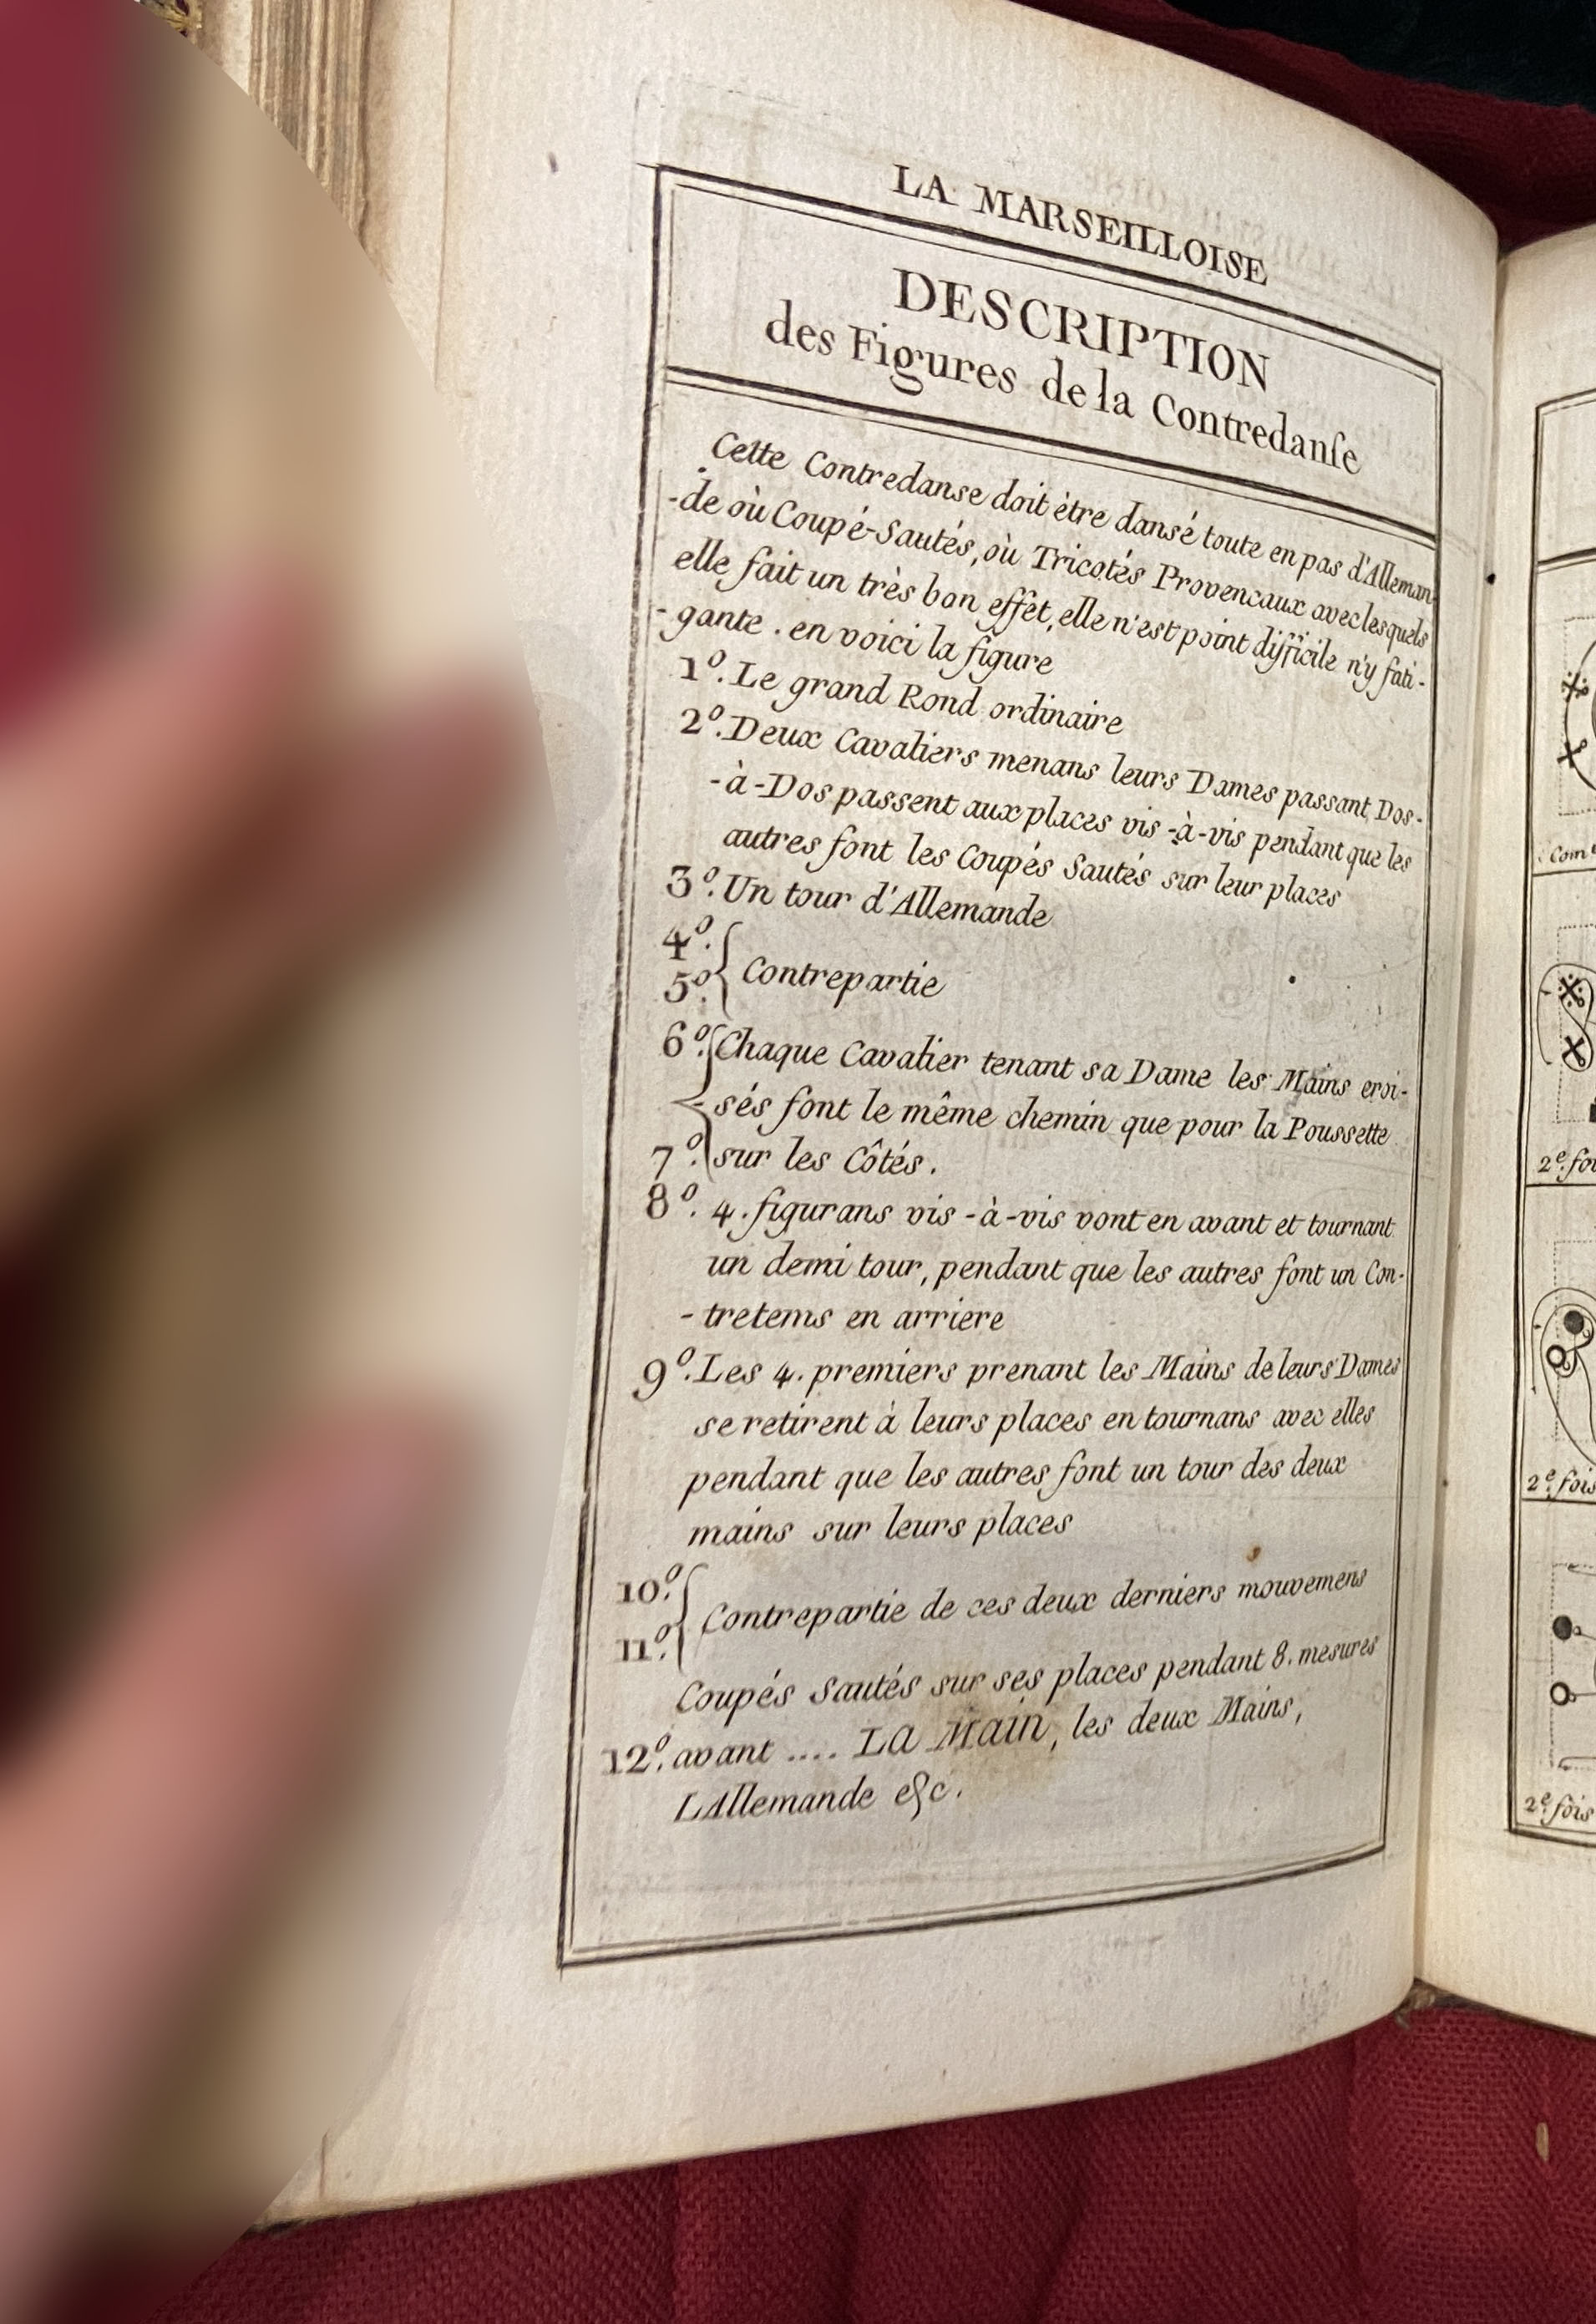 LA MARSEILLOISE
DESCRIPTION
des Figures de la Contredanſe
Cette Contredanse doit ètre dansé toute en pas d'Alleman
-de où Coupé-Sautés, où Tricotés Provencaux avec lesquels
elle fait un très bon effêt, elle n'est point difficile n'y fati-
-gante. en voici la figure
1º. Le grand Rond ordinaire
2º. Deux Cavaliers menans leurs Dames passant Dos-
-à-Dos passent aux places vis-à-vis pendant que les
autres font les Coupés Sautés sur leur places
3º. Un tour d'Allemande
4º.
5º. Contrepartie
6º. Chaque Cavalier tenant sa Dame les Mains croi-
sés font le même chemin que pour la Poussette
7º. sur les Côtés.
8º. 4. figurans vis-à-vis vont en avant et tournant
un demi tour, pendant que les autres font un Con-
-tretems en arriere
9º. Les 4. premiers prenant les Mains de leurs Dames
se retirent à leurs places en tournans avec elles
pendant que les autres font un tour des deux
mains sur leurs places
10º.
11º. Contrepartie de ces deux derniers mouvemens
Coupés Sautés sur ses places pendant 8. mesures
12º. avant .... LA Main, les deux Mains,
LAllemande &c.
2e. fois
2e. fois